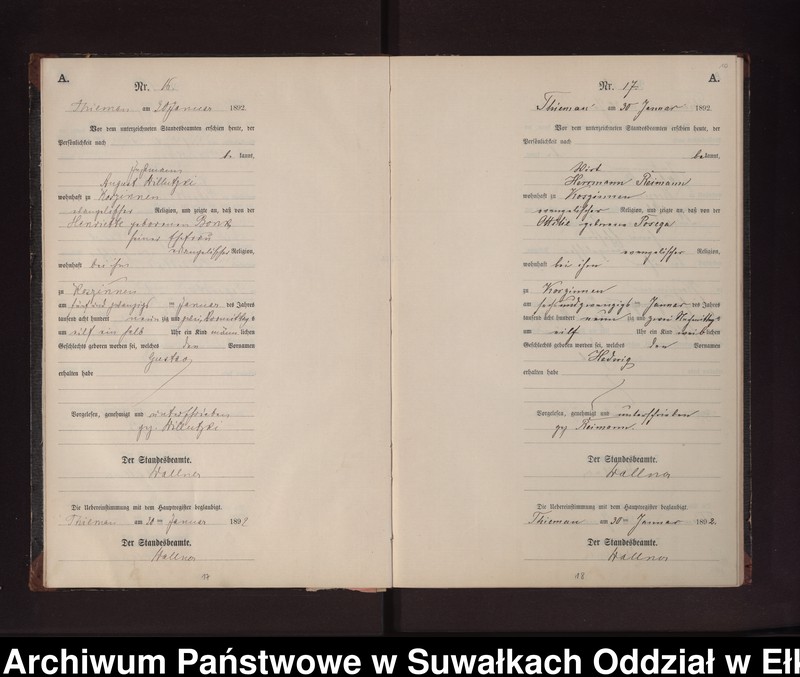 A.
Nr. 16.
Thiemau am 30 Januar 1892.
Vor dem unterzeichneten Standesbeamten erschien heute, der
Persönlichkeit nach
be kannt,
August Willutzki
wohnhaft zu Koszinnen
evangelischer Religion, und zeigte an, daß von der
Henriette geborenen Bonk
seiner Ehefrau
evangelischer Religion,
wohnhaft bei ihm
zu Koszinnen
am fünfundzwanzigsten Januar des Jahres
tausend acht hundert neunzig und zwei Vormittags
um eilf ein halb Uhr ein Kind männlichen
Geschlechts geboren worden sei, welches den Vornamen
Gustav
erhalten habe
Vorgelesen, genehmigt und unterschrieben
gez. Willutzki
Der Standesbeamte.
Wallner
Die Uebereinstimmung mit dem Hauptregister beglaubigt.
Thiemau am 30ten Januar 1892
Der Standesbeamte.
Wallner
17
A.
Nr. 17.
Thiemau am 30 Januar 1892.
Vor dem unterzeichneten Standesbeamten erschien heute, der
Persönlichkeit nach
bekannt,
Wirt
Herrmann Reimann
wohnhaft zu Koszinnen
evangelischer Religion, und zeigte an, daß von der
Ottilie geborene Posega
evangelischer Religion,
wohnhaft bei ihm
zu Koszinnen
am sechsundzwanzigsten Januar des Jahres
tausend acht hundert neunzig und zwei Nachmittags
um eilf Uhr ein Kind weiblichen
Geschlechts geboren worden sei, welches den Vornamen
Hedwig
erhalten habe
Vorgelesen, genehmigt und unterschrieben
gez. Reimann.
Der Standesbeamte.
Wallner
Die Uebereinstimmung mit dem Hauptregister beglaubigt.
Thiemau am 30ten Januar 1892.
Der Standesbeamte.
Wallner
18
Archiwum Państwowe w Suwałkach Oddział w Ełk